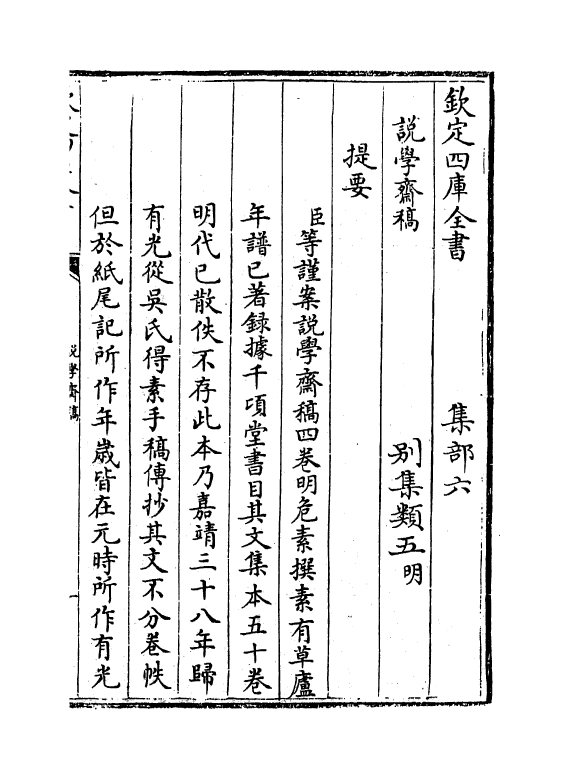 欽定四庫全書　　　　集部六
說學齋稿　　　　別集類五明
提要
臣等謹案說學齋稿四卷明危素撰素有草廬
年譜已著録據千頃堂書目其文集本五十卷
明代已散佚不存此本乃嘉靖三十八年歸
有光從吳氏得素手稿傳抄其文不分卷帙
但於紙尾記所作年歲皆在元時所作有光
說學齋稿
一